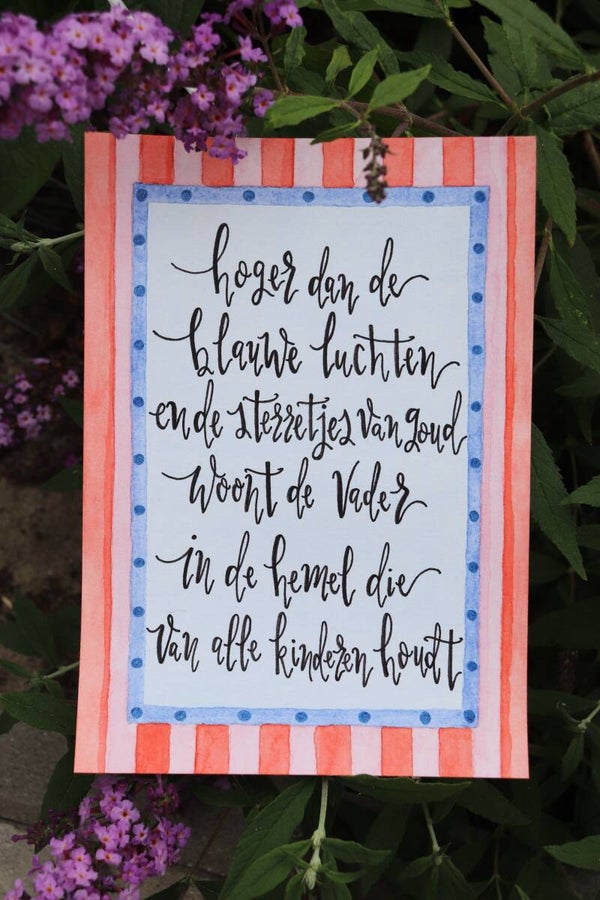 hoger dan de
blauwe luchten
en de sterretjes van goud
woont de Vader
in de hemel die
van alle kinderen houdt